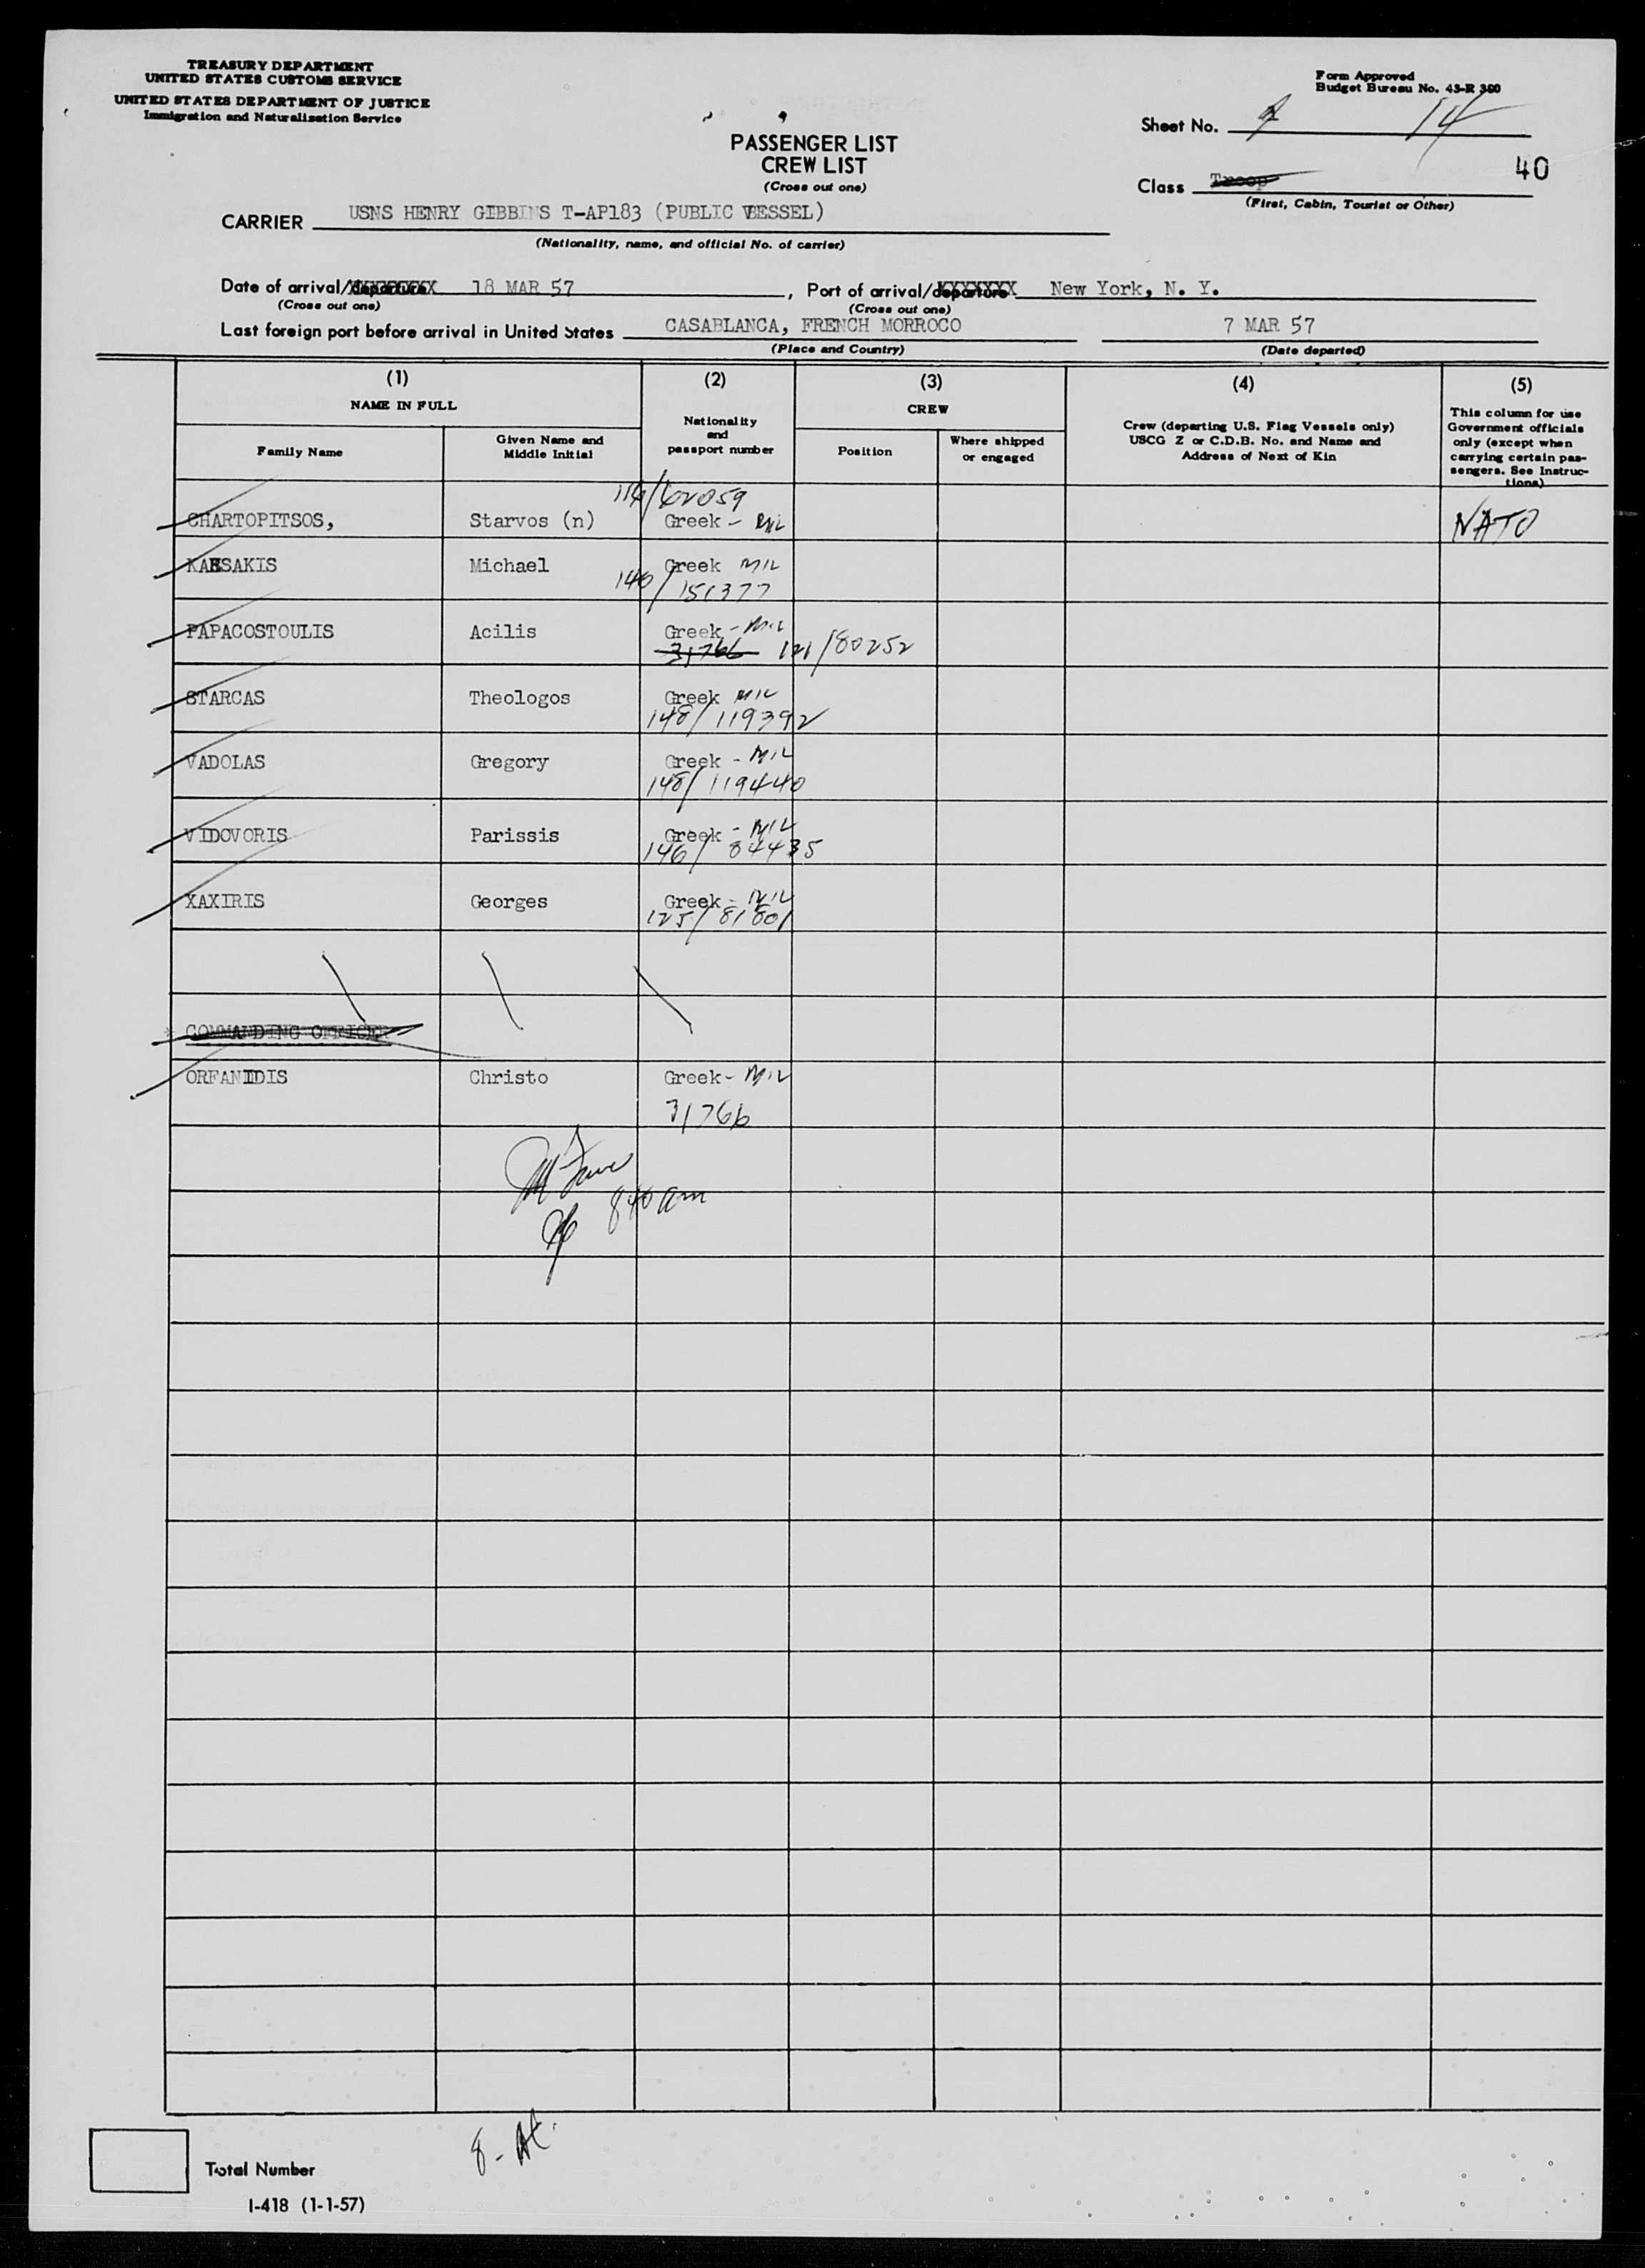 TREASURY DEPARTMENT
UNITED STATES CUSTOMS SERVICE
UNITED STATES DEPARTMENT OF JUSTICE
Immigration and Naturalization Service
Form Approved
Budget Bureau No. 43-R 300
Sheet No. 14
40
PASSENGER LIST
CREW LIST
(Cross out one)
Class Troop
(First, Cabin, Tourist or Other)
CARRIER USNS HENRY GIBBINS T-AP183 (PUBLIC VESSEL)
(Nationality, name, and official No. of carrier)
Date of arrival/departure 18 MAR 57, Port of arrival/departure New York, N. Y.
(Cross out one) (Cross out one)
Last foreign port before arrival in United States CASABLANCA, FRENCH MORROCO 7 MAR 57
(Place and Country) (Date departed)
(1) (2) (3) (4) (5)
NAME IN FULL
Family Name
Given Name and
Middle Initial
Nationality
and
passport number
CREW
Position
Where shipped
or engaged
Crew (departing U.S. Flag Vessels only)
USCG Z or C.D.B. No. and Name and
Address of Next of Kin
This column for use
Government officials
only (except when
carrying certain pas-
sengers. See Instruc-
tions)
116/62059
CHARTOPITSOS, Starvos (n) Greek - Mil NATO
KARSAKIS Michael Greek MIL
140/151377
PAPACOSTOULIS Acilis Greek - Mil
31766 121/80252
STARCAS Theologos Greek MIL
148/119392
VADOLAS Gregory Greek - MIL
148/119440
VIDOVORIS Parissis Greek - MIL
146/84435
XAXIRIS Georges Greek - MIL
125/81801
* COMMANDING OFFICER
ORFANIDIS Christo Greek - MIL
31766
840 am
8 -
Total Number
I-418 (1-1-57)